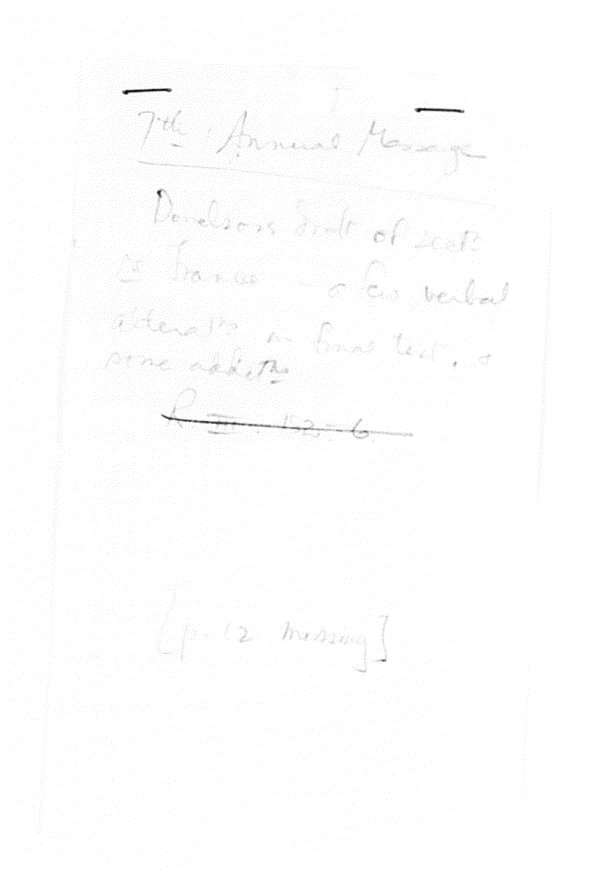 7th Annual Message
Donelson's draft of sectn
re France - a few verbal
alteratns in final text, &
some addtns
R III. 152-6
[p. 12 missing]